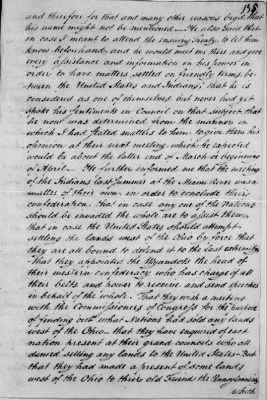 138
and therefore for that and many other reasons begs that
his name might not be mentioned — He also said that
in case I meant to attend the ensuing Treaty to let him
know beforehand, and he would meet me there and give
every assistance and information in his power in
order to have matters settled on friendly terms be-
tween the United States and Indians; that he is
considered as one of themselves but never had yet
spoke his sentiments in Council on that subject that
he now was determined from the manner in
which I had stated matters to him to give them his
opinion at their next meeting, which he expected
would be about the latter end of March or beginning
of April — He further informed me that the meeting
of the Indians last Summer at the Miami Towns was a
matter of their own in order to conclude their
confederation. That in case any one of the Nations
should be invaded the whole are to assist them,
that in case the United States should attempt
settling the lands west of the Ohio by force that
they are all bound to resent it to the last extremity
That they appointed the Wyandocks the head of
their western confederacy who has charge of all
their belts and power to receive and send speeches
in behalf of the whole. That they wish a meeting
with the Commissioners of Congress for the purpose
of finding out what Nations had sold any lands
west of the Ohio — that they have enquired of each
nation present at their grand councils who all
denied selling any lands to the United States — But
that they had made a present of some lands
west of the Ohio to their old friends the Pennsylvanians
which